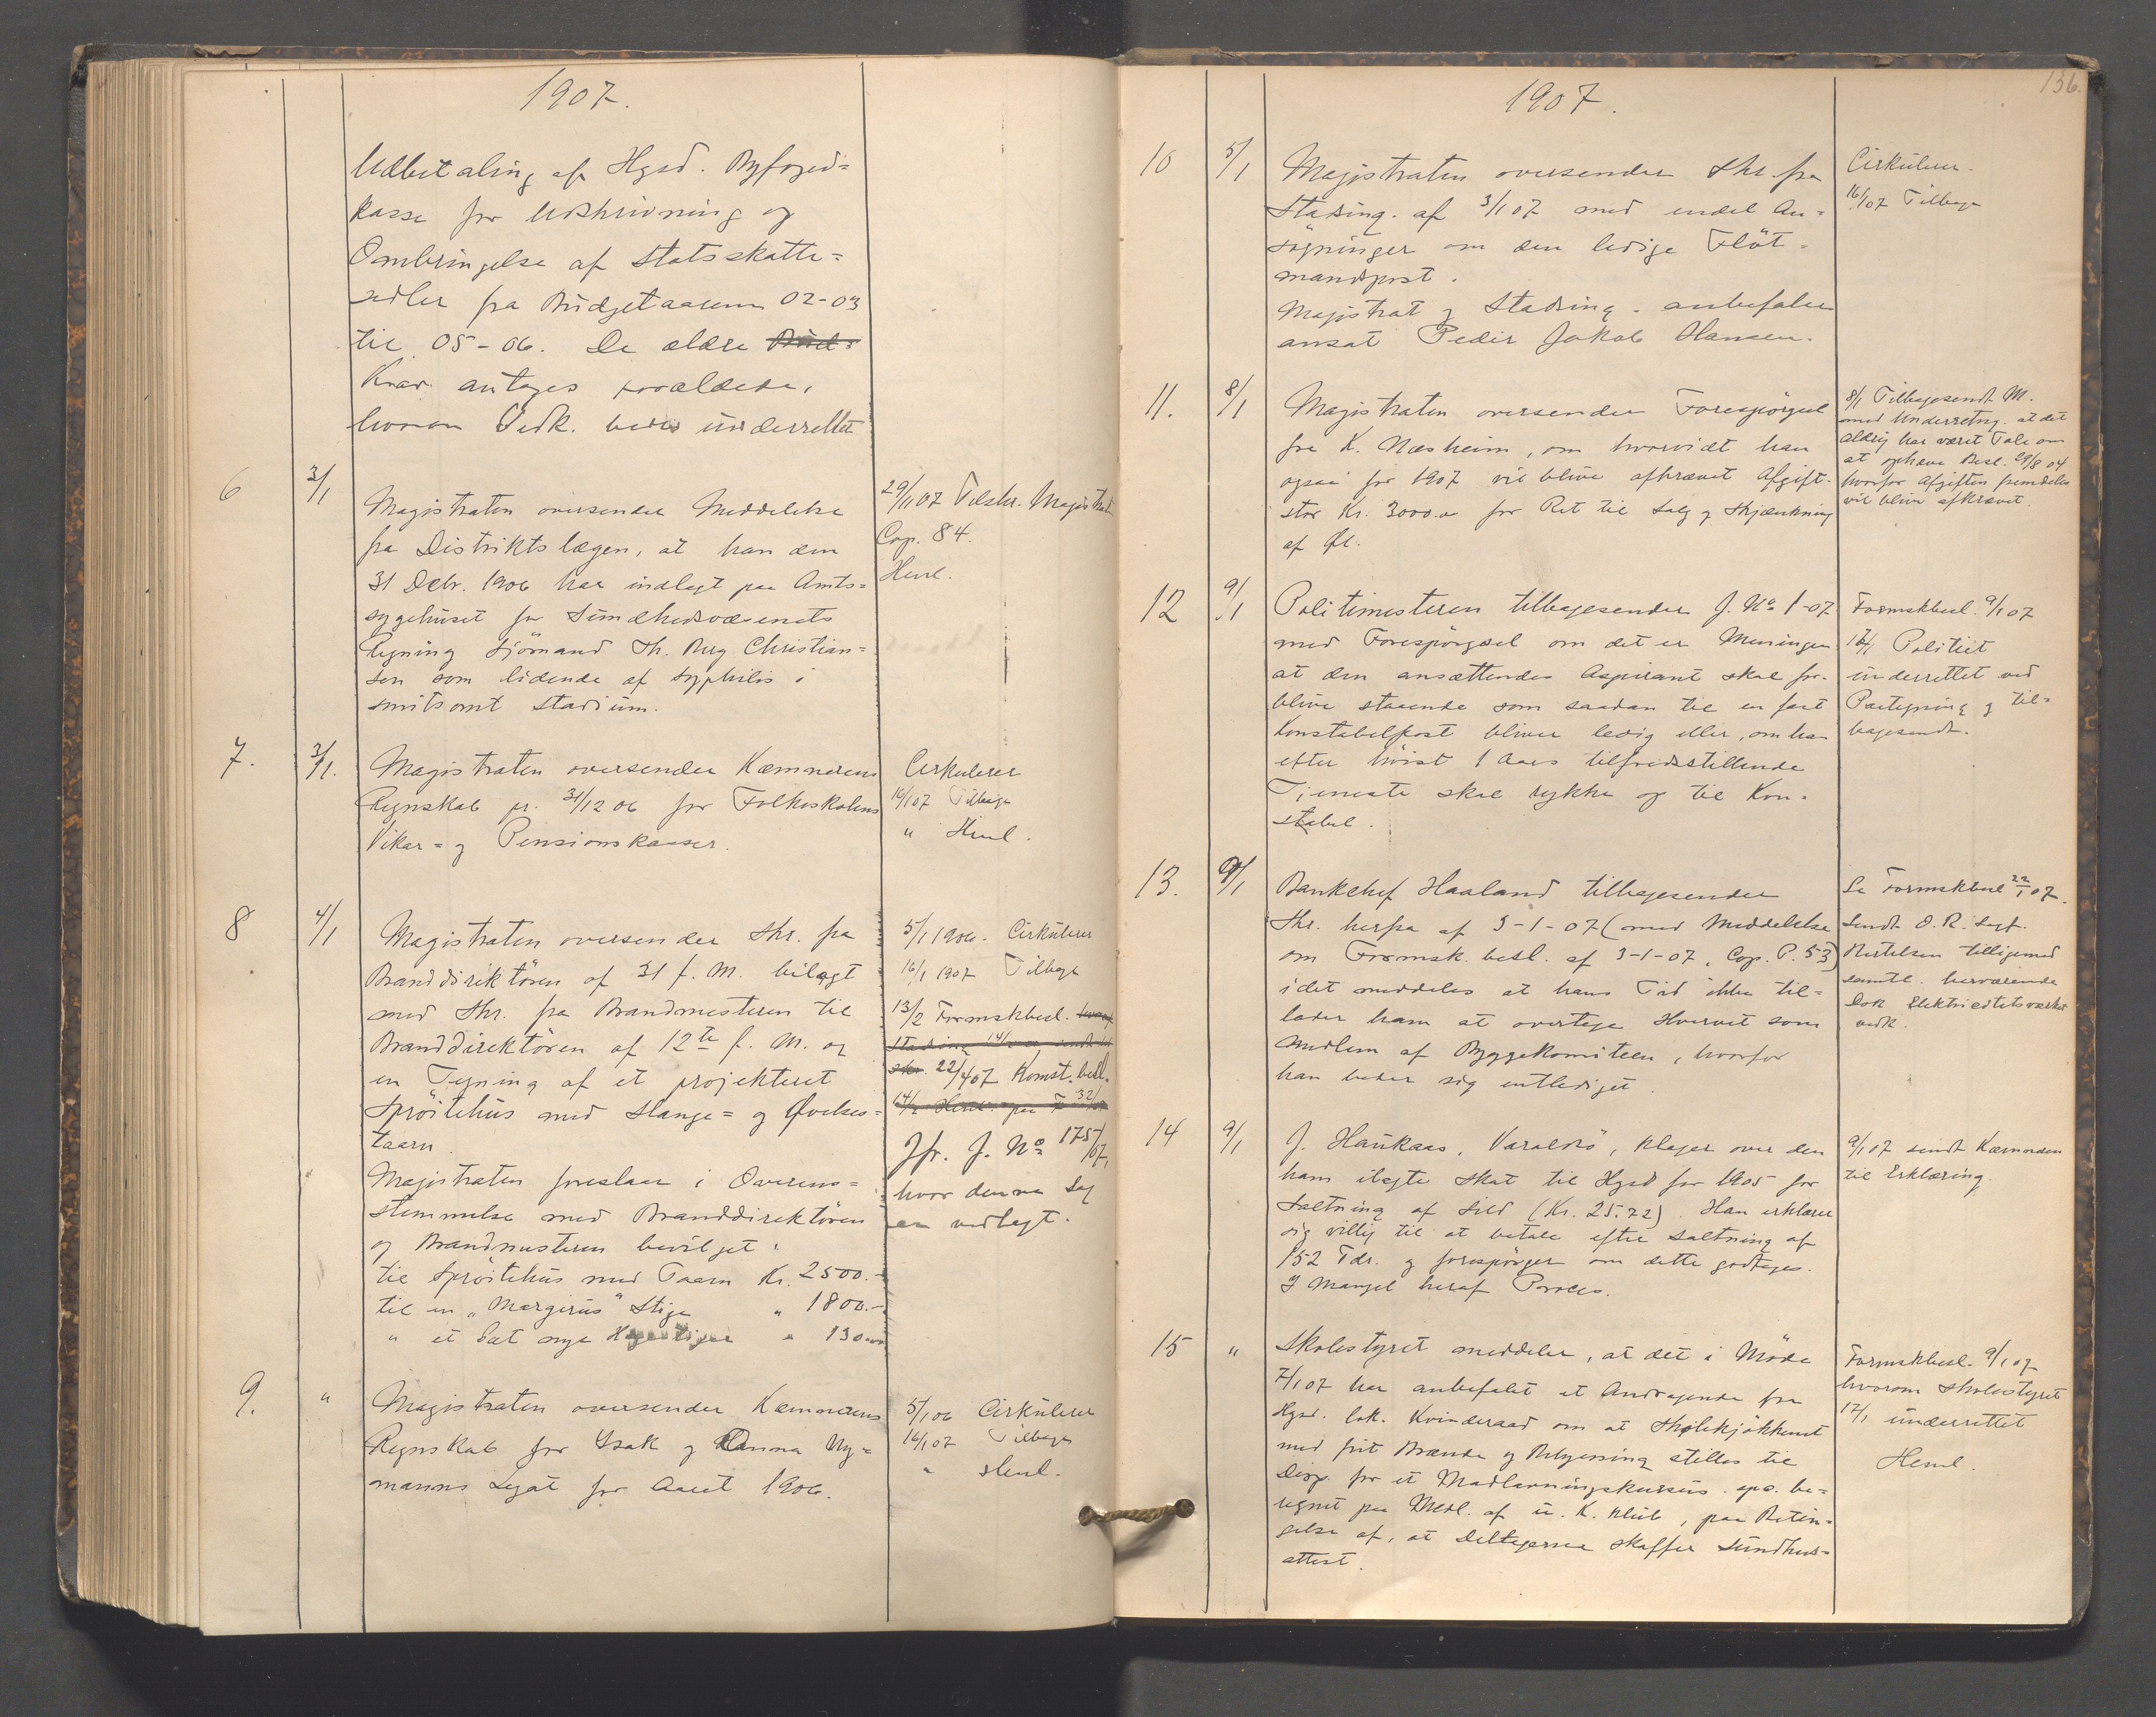 1907.
Udbetaling af Hgsd. Byfoged=
kasse for Udskrivning og
Ombringelse af Statsskatte=
sedler fra Budgetaarene 02-03
til 05-06. De ældre
Krav antages forældede,
hvorom Vedk. bedes underrettet
6 3/1 Magistraten oversender Meddelelse
fra Distriktslægen, at han den
31 Decbr. 1906 har indlagt paa Amts=
sygehuset for Sundhedsvæsenets
Regning Sjömand Th. Berg Christian=
sen som lidende af syphilis i
smitsomt stadium.
29/1 07 Tilskr. Magistrat
Cop. 84.
Henl.
7. 3/1. Magistraten oversender Kæmnerens
Regnskab pr. 31/12 06 for Folkeskolens
Vikar= og Pensionskasser.
Cirkulerer
16/1 07 Tilbage
" Henl.
8 4/1 Magistraten oversender Skr. fra
Branddirektören af 31 f. M. bilagt
med Skr. fra Brandmesteren til
Branddirektören af 12te f. M. og
en Tegning af et projekteret
Spröitehus med Slange= og Øvelses=
taarn.
Magistraten foreslaar i Overens=
stemmelse med Branddirektören
og Brandmesteren bevilget:
til Spröitehus med Taarn Kr. 2500.-
til en "Margirus" Stige " 1800.-
" et Sæt nye " 130.00
5/1 1906. Cirkulerer
16/1 1907 Tilbage
13/2 Formskbesl.
22/4 07 Komst. besl.
Jfr. J. No 175/07,
hvor denne Sag
er vedlagt.
9. " Magistraten oversender Kæmnerens
Regnskab for Isak og Anna Ny=
manns Legat for Aaret 1906.
5/1 06 Cirkulerer
16/1 07 Tilbage
" Henl.
136.
1907.
10 5/1 Magistraten oversender Skr. fra
Stadsing. af 3/1 07 med endel An=
sögninger om den ledige Flöt=
mandspost.
Magistrat og Stadsing. anbefaler
ansat Peder Jakob Hansen.
Cirkulerer.
16/1 07 Tilbage
11. 8/1 Magistraten oversender Forespörgsel
fra K. Næsheim, om hvorvidt han
ogsaa for 1907 vil blive afkrævet Afgift
stor Kr. 3000.00 for Ret til Salg og Skjænkning
af Øl.
8/1 Tilbagesendt M.
med Underretng. at det
aldrig har været Tale om
at ophæve Besl. 29/8 04
hvorfor Afgiften fremdeles
vil blive afkrævet.
12 9/1 Politimesteren tilbagesender J. No 1-07
med Forespörgsel om det er Meningen
at den ansættendes Aspirant skal for=
blive staaende som saadan til en fast
Konstabelpost bliver ledig eller, om han
efter höist 1 Aars tilfredsstillende
Tjeneste skal rykke op til Kon=
stabel.
Formskbesl. 9/1 07
Politiet
underrettet ved
Paategning og til=
bagesendt.
13. 9/1 Bankchef Haaland tilbagesender
Skr. herfra af 3-1-07 (med Meddelelse
om Formsk. besl. af 3-1-07, Cop. P. 53)
idet meddeles at hans Tid ikke til=
lader ham at overtage Hvervet som
Medlem af Byggekomiteen, hvorfor
han beder sig entlediget.
Se Formskbesl 22/1 07.
Sendt O.R.
tilligemed
samtl. herværende
Dok. Elektricitetsværket
vedk.
14 9/1 J. Haukaas, Varaldsö, klager over den
ham ilagte Skat til Hgsd for 1905 for
Saltning af Sild (Kr. 25.72). Han erklærer
sig villig til at betale efter Saltning af
152 Tdr. og forespörger om dette godtages.
I Mangel heraf Proces.
9/1 07 sendt Kæmneren
til Erklæring.
15 " Skolestyret meddeler, at det i Möde
7/1 07 har anbefalet et Andragende fra
Hgsd. lok. Kvinderaad om at Skolekjökkenet
med frit Brænde og Belysning stilles til
Disp. for et Madlavningskursus spec. be=
regnet paa Medl. af u. K. klub, paa Betin=
gelse af, at Deltagerne skaffer Sundheds=
attest.
Formskbesl. 9/1 07
hvorom Skolestyret
12/1 underrettet
Henl.